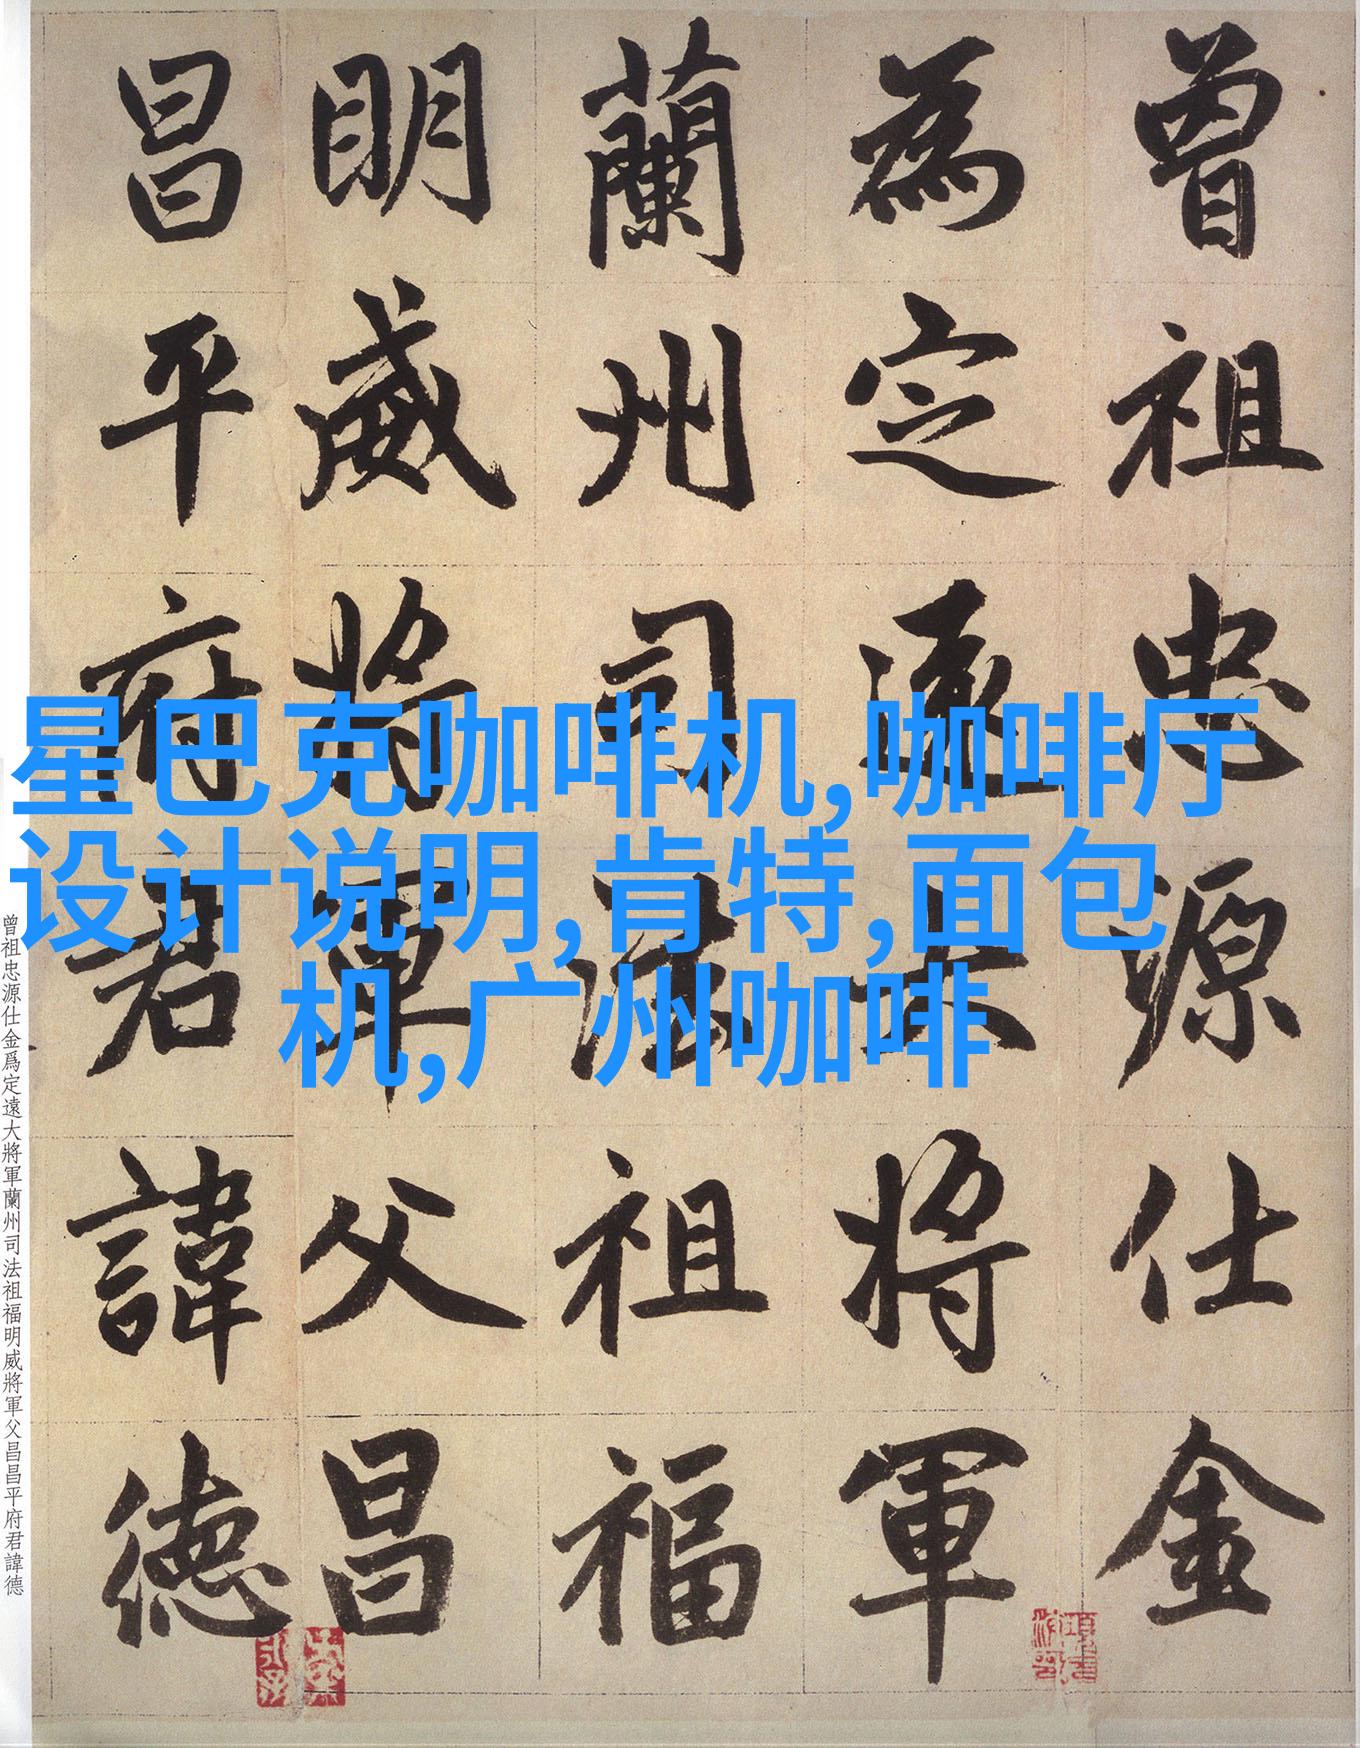 曾祖忠源仕金
為定遠大将軍
蘭州司法祖福
明威将軍父昌
昌平府君諱徳
星巴克咖啡机,咖啡厅
设计说明,肯特,面包
机,广州咖啡
曾祖忠源仕金爲定遠大將軍蘭州司法祖福明威將軍父昌昌平府君諱德